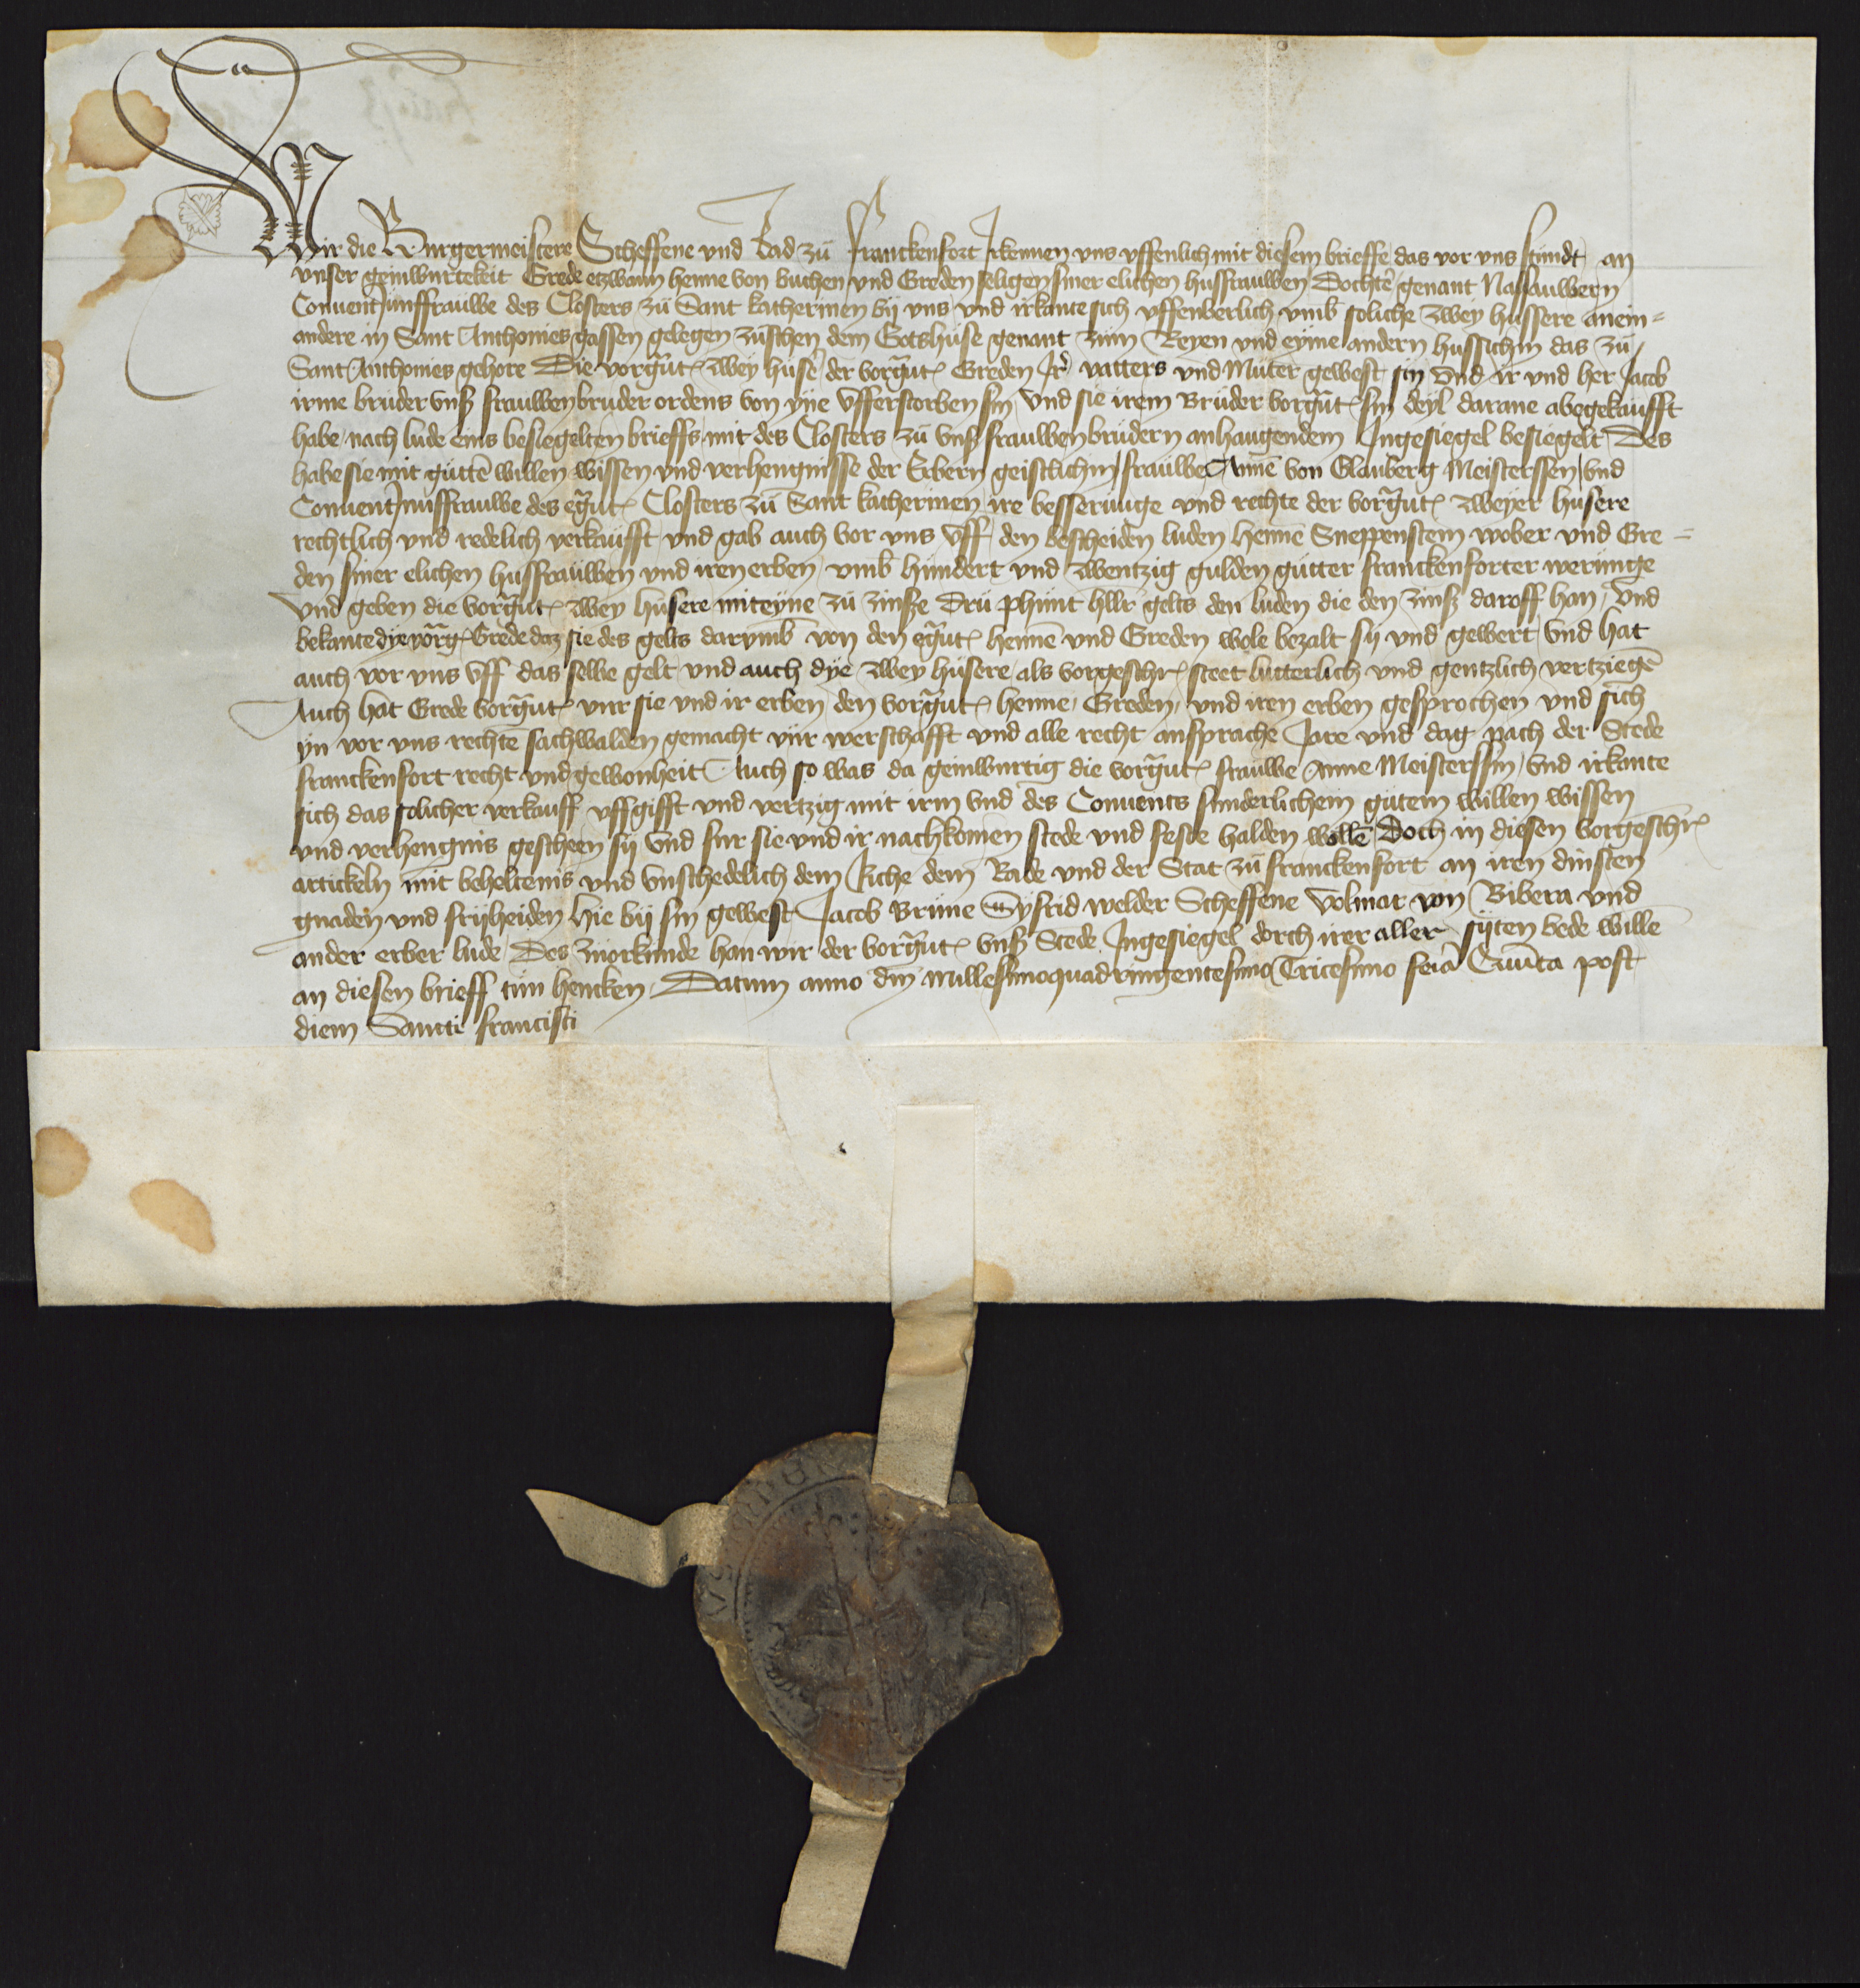 Wir die Burgermeistere Scheffene und Rad zů Franckenfort Irkennen uns uffenlich mit diesem brieffe das vor uns stůndt an
unser geinwurtekeit Grede etzwann Henne von Buchen und Greden seligen siner elichen husfrauwen Dochter genant Nassauwern
Conuent junffrauwe des Closters zů Sant Katherinen bij uns und irkante sich uffenberlich umb soliche zwey hussere anein=
andere in Sant Anthonies gassen gelegen zůschen dem Gotshuse genant zům Reyen und eyme andern hussichin das zů
Sant Anthonies gehore Die vorg̃ut zwey huser der vorg̃ut Greden Ir vatters und Muter gewest sin und ir und her Jacob
irme bruder unß frauwen bruder ordens von yne ufferstorben sin Und sie irem Brůder vorg̃ut sin deyl darane abegekaufft
habe nach lude eins besiegelten brieffs mit des Closters zů unß frauwen brůdern anhangendem Ingesiegel besiegelt Des
habe sie mit gutten willen wissen und verhengnisse der Erbern geistlichin frauwe Annen von Glauberg Meisterssen und
Conuent Junffrauwe des eg̃ut Closters zů Sant Katherinen ire besserunge und rechte der vorg̃ut zweyer husere
rechtlich und redelich verkaufft und gab auch vor uns uff den bescheiden luden Henne Sneppenstein wober und Gre=
den siner elichen husfrauwen und iren erben umb hundert und zwentzig gulden gutter Franckenforter werunge
Und geben die vorg̃ut zwey husere mit eyne zů zinße drů phunt hllr gelts den luden die den zinß daroff han Und
bekante dye vorg̃ Grede daz sie des gelts darumb von den eg̃ut Henne und Greden wole bezalt sij und gewert Und hat
auch vor uns uff das selbe gelt und auch dye zwey husere als vorgeschr steet lutterlich und gentzlich vertziegen
Auch hat Grede vorg̃ut vur sie und ir erben den vorg̃ut Henne Greden und iren erben gesprochen und sich
yn vor uns rechte sachwalden gemacht vur werschafft und alle recht ansprache Jare und dag nach der Stede
Franckenfort recht und gewonheit Auch so was da geinwurtig die vorg̃ut frauwe Anne Meisterssin und irkante
sich das solicher verkauff uffgifft und vertzig mit irm und des Conuents sunderlichem gutem willen wissen
und verhengnis gescheen sij Und fur sie und ir nachkomen stede und feste halden wolle Doch in diesen vorgeschr
artickeln mit beheltenis und unschedelich dem Riche dem Rade und der Stat zů Franckenfort an iren dinsten
gnaden und frijheiden Hie bij sin gewest Jacob Brune Syfrid welder Scheffene Volmar von Bibera und
ander erber lude Des zuorkunde han wir der vorg̃ut unß Stede Ingesiegel dorch irer aller sijten bede wille
an diesen brieff tun hencken Datum anno dm̃ millesimoquadringentesimo Tricesimo feria Quinta post
diem Sancti Francisci